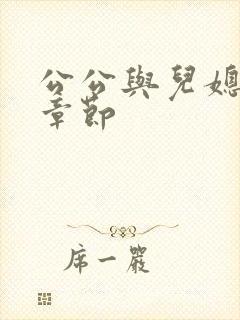 公公與兒媳
章節
席一嚴